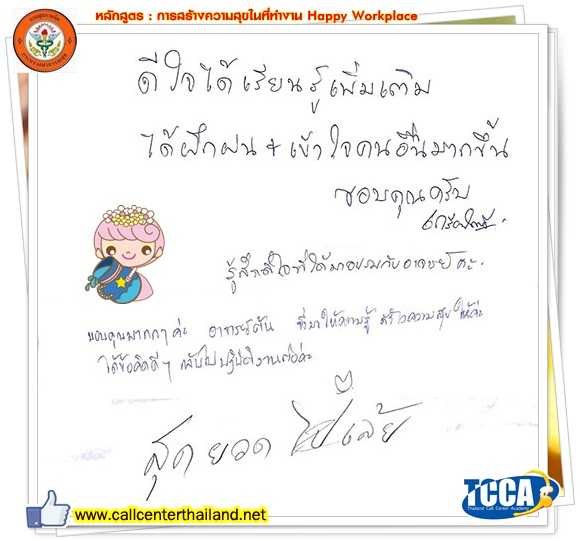 หลักสูตร : การสร้างความสุขในที่ทำงาน Happy Workplace
ดีใจได้เรียนรู้เพิ่มเติม
ได้ฝึกฝน + เข้าใจคนอื่นมากขึ้น
ขอบคุณครับ
รู้สึกดีใจที่ได้มาอบรมกับอาจารย์ค่ะ.
ขอบคุณมากๆ ค่ะ อาจารย์ต้น ที่มาให้ความรู้ สร้างความสุข ให้ค่ะ
ได้ข้อคิดดีๆ กลับไปปฏิบัติงานต่อค่ะ
สุดยอด ไปเล้ย
TCCA
Thailand Call Center Academy
www.callcenterthailand.net